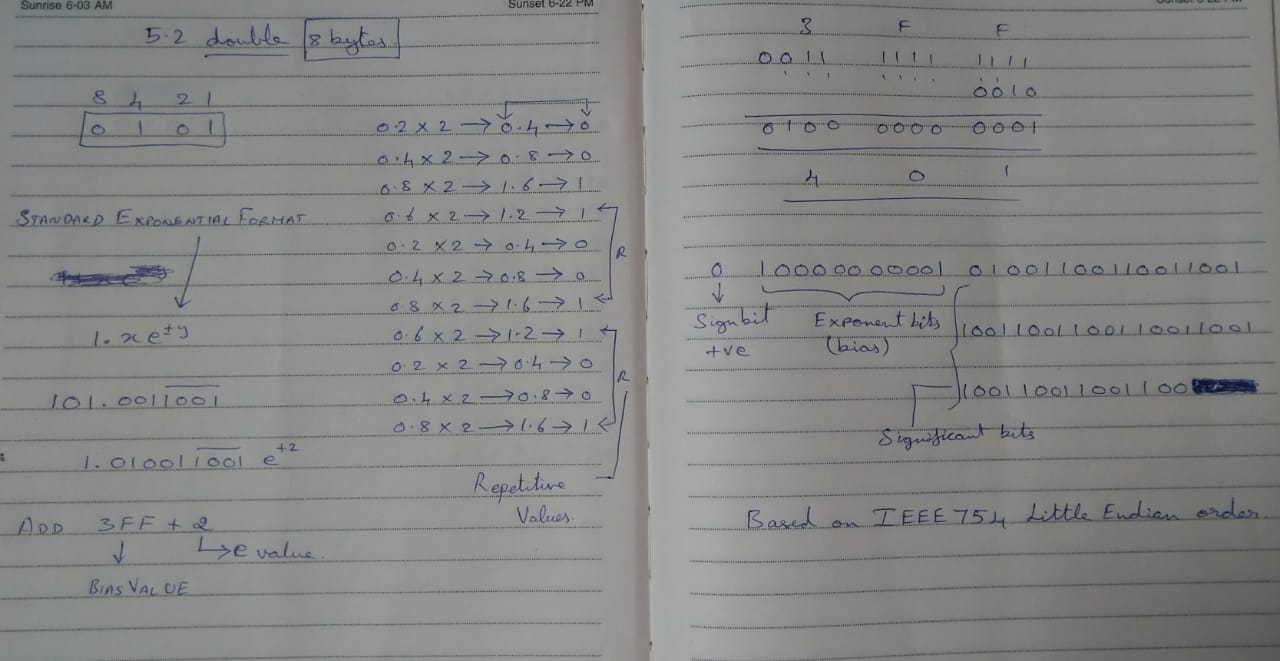 Sunrise 6-03 AM
Sunset 6-22 PM
5.2 double 8 bytes.
8 4 2 1
0 1 0 1
STANDARD EXPONENTIAL FORMAT
1.x e±y
101.0011001
1.010011001 e+2
ADD 3FF + 2
e value.
BIAS VALUE
0.2 x 2 → 0.4 → 0
0.4 x 2 → 0.8 → 0
0.8 x 2 → 1.6 → 1
0.6 x 2 → 1.2 → 1
0.2 x 2 → 0.4 → 0
0.4 x 2 → 0.8 → 0
0.8 x 2 → 1.6 → 1
R
0.6 x 2 → 1.2 → 1
0.2 x 2 → 0.4 → 0
0.4 x 2 → 0.8 → 0
0.8 x 2 → 1.6 → 1
R
Repetitive
Values.
3 F F
0011 1111 1111
0010
0100 0000 0001
4 0 1
0 10000000001 01001100110011001
Sign bit Exponent bits
+ve (bias)
10011001100110011001
100110011001100
Significant bits
Based on IEEE 754 Little Endian order.